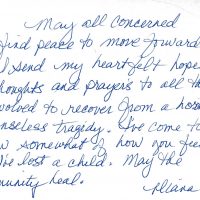 May all concerned
find peace to move forward
I send my heartfelt hope
thoughts and prayers to all th
volved to recover from a hor
nseless tragedy. I've come to
w somewhat of how you fee
I've lost a child. May the
munity heal.
Diana